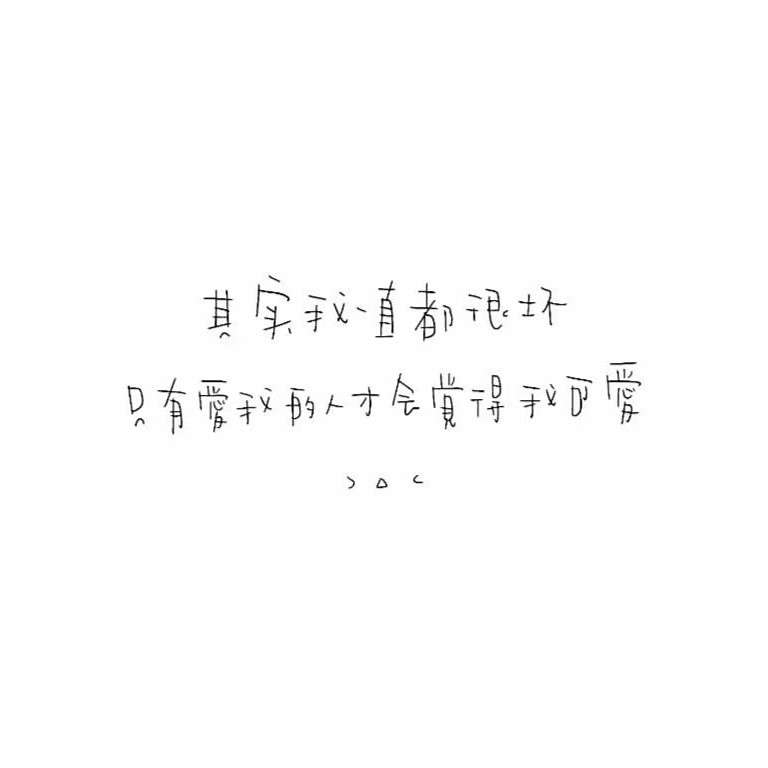 其实我一直都很坏
只有愛我的人才会覚得我可愛
> △ <